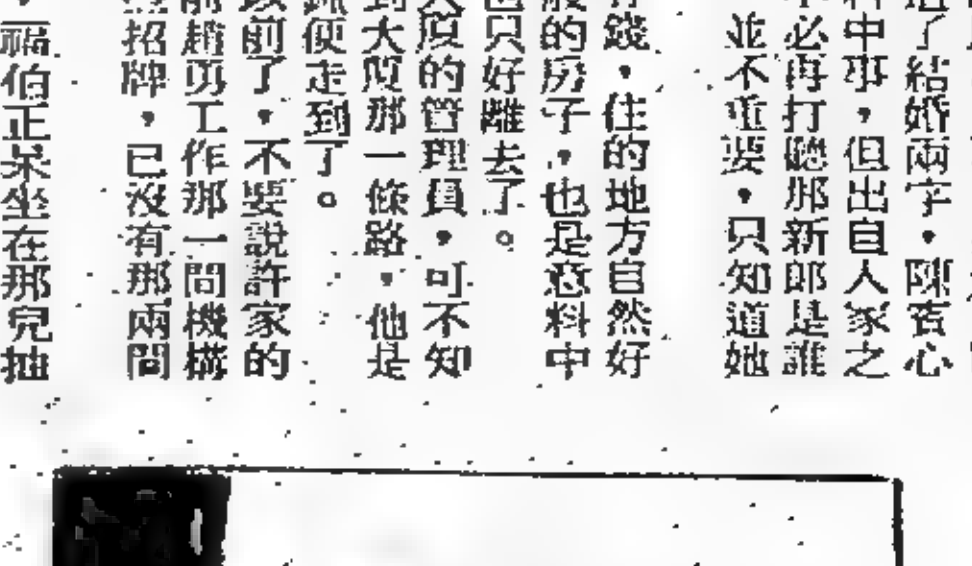 了結婚兩字，陳賓心
料中事，但出自人家之
不必再打聽那新郎是誰
並不重要，只知道她
有錢，住的地方自然好
般的房子，也是意料中
也只好離去了。
大厦的管理員，可不知
到大厦那一條路，他是
便走到了。
以前了，不要說許家的
前趙勇工作那一間機構
招牌，已沒有那兩間
，福伯正呆坐在那兒抽